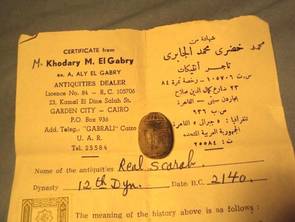 CERTIFICATE from
M. Khodary M. El Gabry
ex. A, ALY EL GABRY
ANTIQUITIES DEALER
Licence No. 84 - R.C. 105706
23, Kamel El Dine Salah St.
GARDEN CITY - CAIRO
P.O. Box 936
Add. Teleg. "GABRALI" Cairo
U. A. R.
Tel. 25584
شهادة من
محمد خضرى محمد الجابرى
تاجر أنتيكات
س . ت ١٠٥٧٠٦ - رخصة نمرة ٨٤
٢٣ شارع كمال الدين صلاح
جاردن سيتى - القاهرة
ص . ب ٩٣٦
تلغرافيا : جبرالى القاهرة
الجمهورية العربية المتحدة
ت ٢٥٥٨٤
Name of the antiquities Real scarab.
Dynasty 12th Dyn. Date B.C. 2140.
The meaning of the history above is as follows :